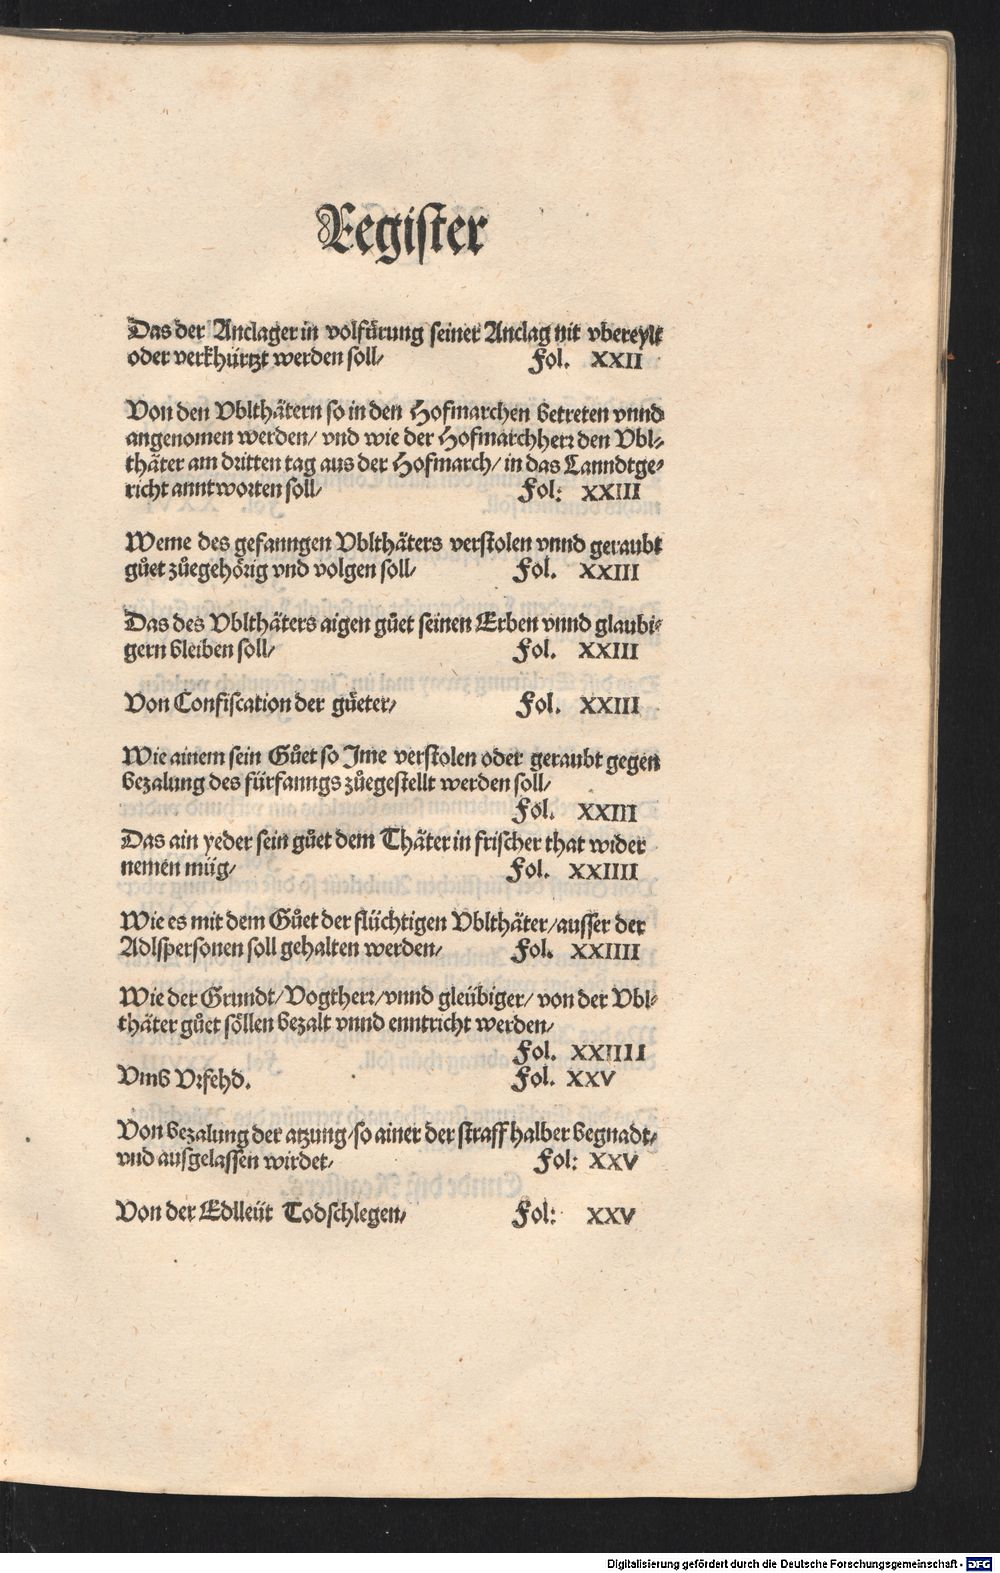 Register
Das der Anclager in volfürung seiner Anclag nit vbereylt
oder verkhürtzt werden soll/ Fol. XXII
Von den Vblthätern so in den Hofmarchen betreten vnnd
angenomen werden/ vnd wie der Hofmarchherr den Vbl⸗
thäter am dritten tag aus der Hofmarch/ in das Lanndtge⸗
richt anntworten soll/ Fol: XXIII
Weme des gefanngen Vblthäters verstolen vnnd geraubt
gůet zůegehörig vnd volgen soll/ Fol. XXIII
Das des Vblthäters aigen gůet seinen Erben vnnd glaubi⸗
gern bleiben soll/ Fol. XXIII
Von Confiscation der gůeter/ Fol. XXIII
Wie ainem sein Gůet so Ime verstolen oder geraubt gegen
bezalung des fürfanngs zůegestellt werden soll/
Fol. XXIII
Das ain yeder sein gůet dem Thäter in frischer that wider
nemen müg/ Fol. XXIIII
Wie es mit dem Gůet der flüchtigen Vblthäter/ ausser der
Adlspersonen soll gehalten werden/ Fol. XXIIII
Wie der Grundt/ Vogtherr/ vnnd gleübiger/ von der Vbl⸗
thäter gůet söllen bezalt vnnd enntricht werden/
Fol. XXIIII
Vmb Vrfehd. Fol. XXV
Von bezalung der atzung/ so ainer der straff halber begnadt/
vnd ausgelassen wirdet/ Fol: XXV
Von der Edlleüt Todschlegen/ Fol: XXV
Digitalisierung gefördert durch die Deutsche Forschungsgemeinschaft - DFG